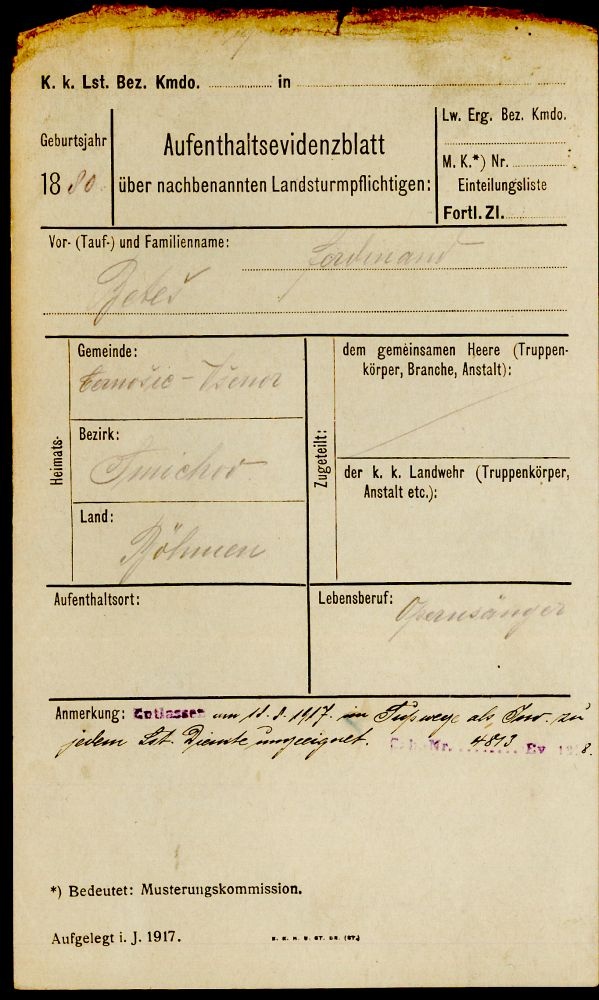 K. k. Lst. Bez. Kmdo. in
Lw. Erg. Bez. Kmdo.
Geburtsjahr
1880
Aufenthaltsevidenzblatt
über nachbenannten Landsturmpflichtigen:
M. K.*) Nr.
Einteilungsliste
Fortl. Zl.
Vor- (Tauf-) und Familienname:
Ferdinand
Heimats-
Gemeinde:
Bezirk:
Smichov
Land:
Böhmen
Zugeteilt:
dem gemeinsamen Heere (Truppen-
körper, Branche, Anstalt):
der k. k. Landwehr (Truppenkörper,
Anstalt etc.):
Aufenthaltsort:
Lebensberuf: Opernsänger
Anmerkung: Entlassen am 1917. im als Inv. zu
jedem Lst. Dienste ungeeignet. Nr. 4813 Ev
*) Bedeutet: Musterungskommission.
Aufgelegt i. J. 1917.